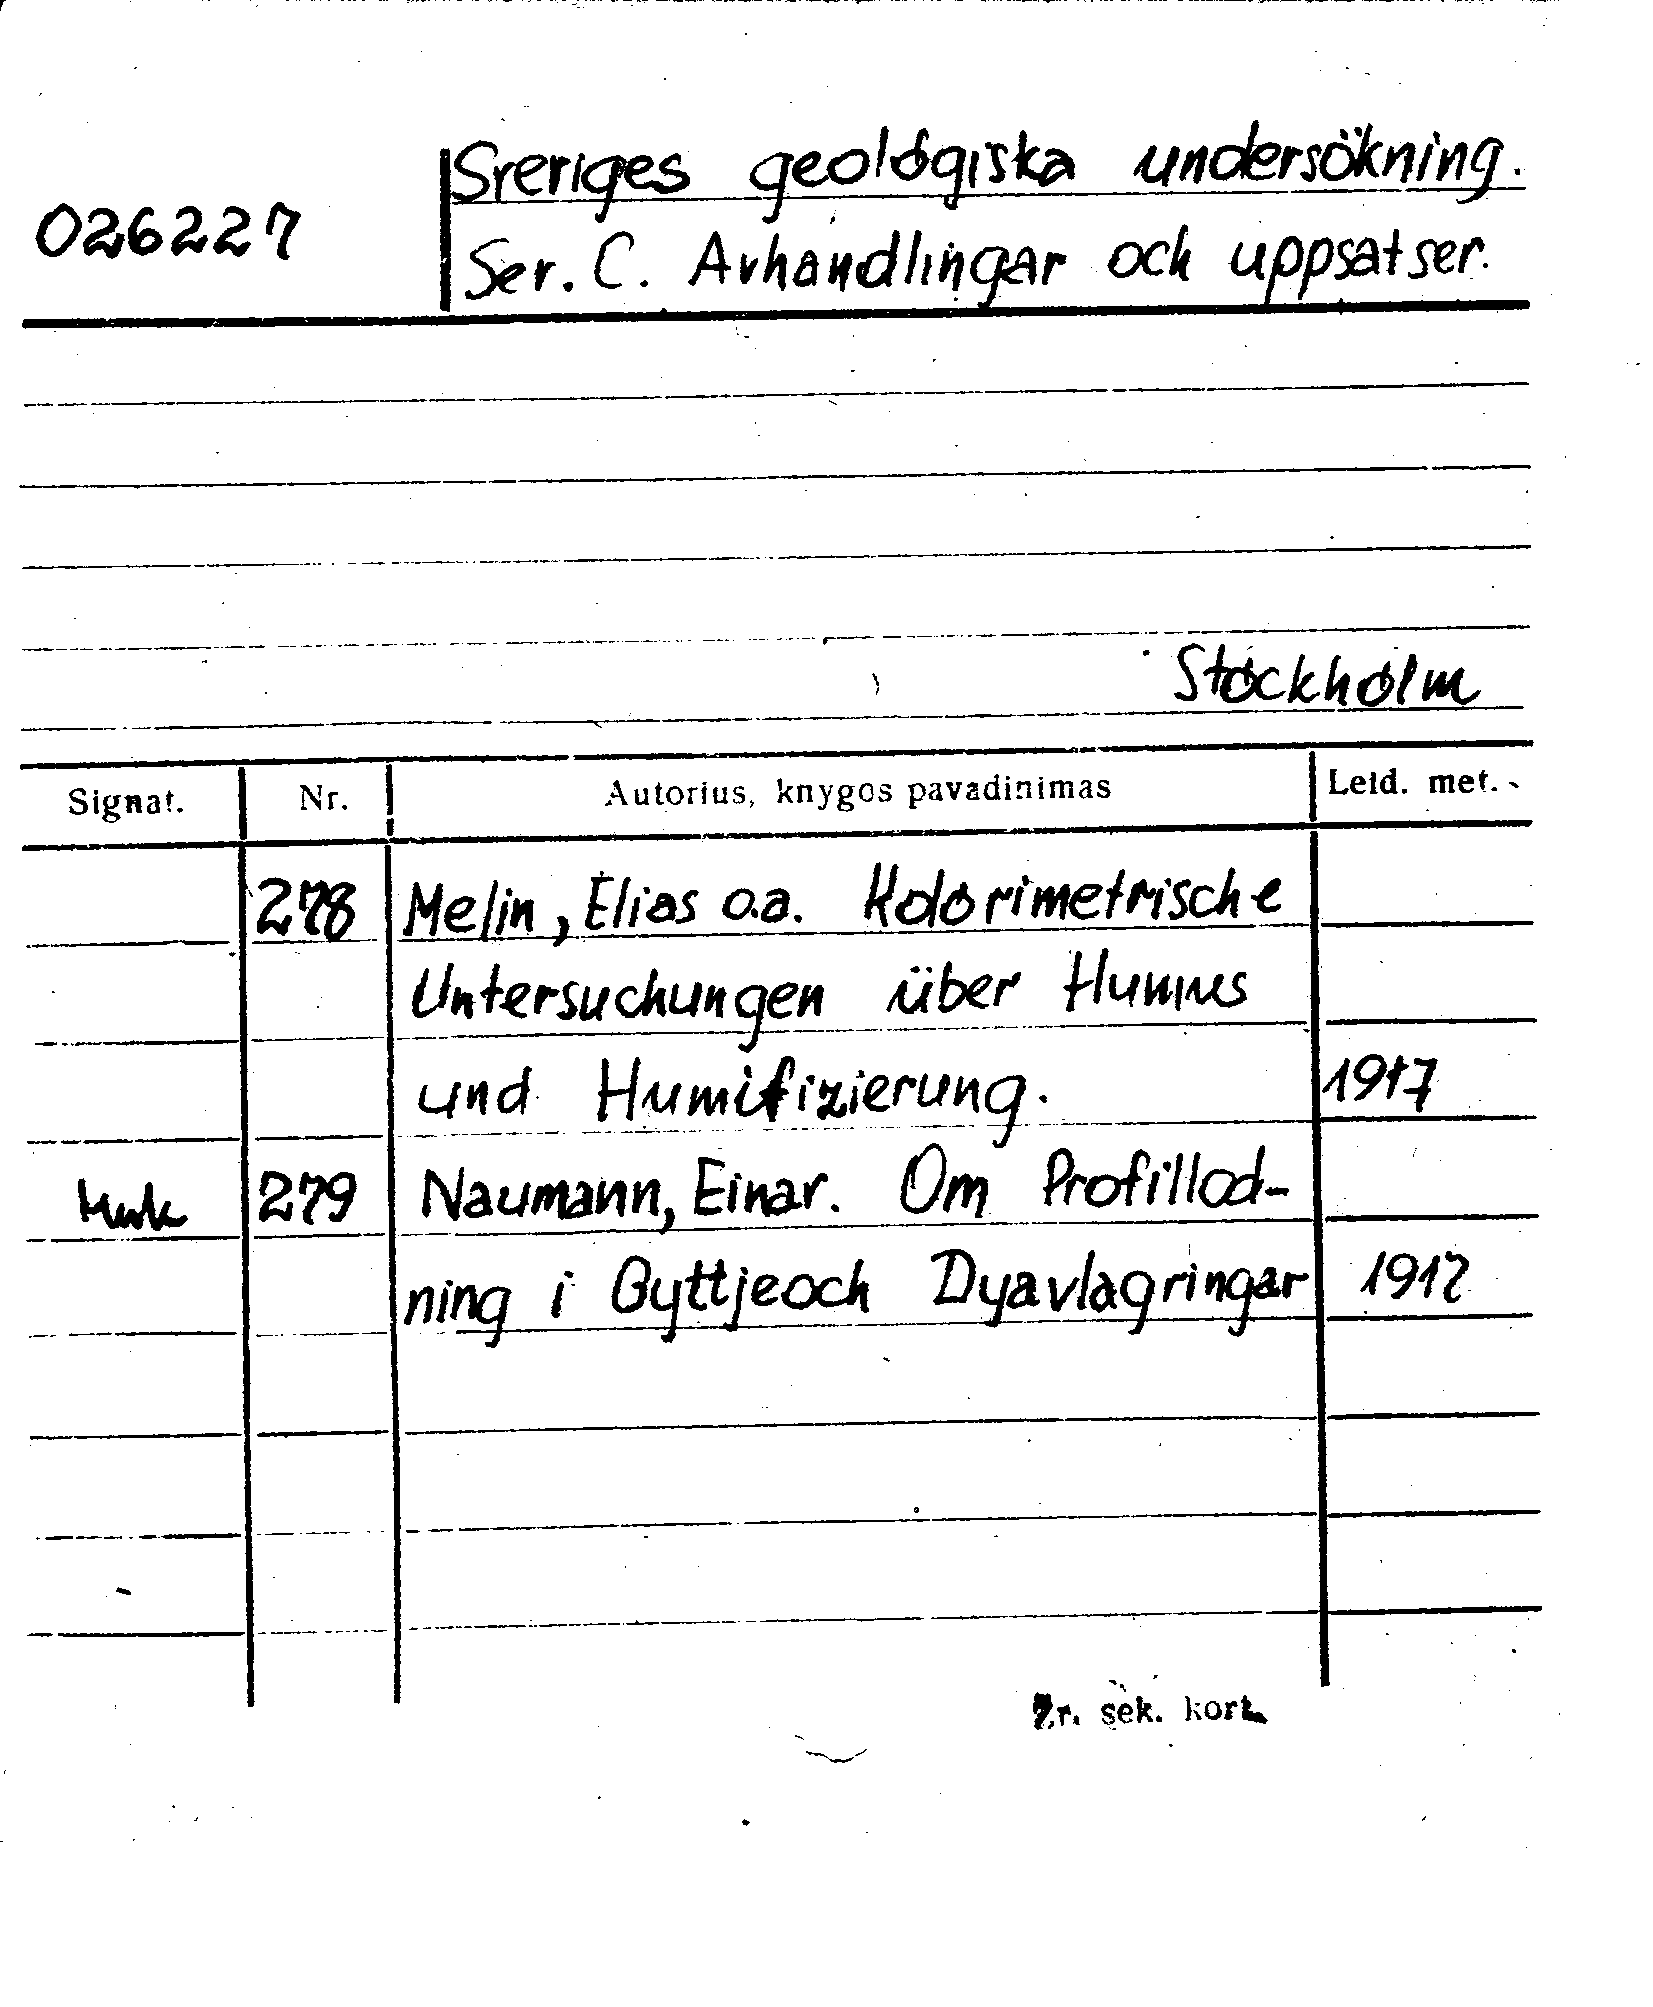 Sveriges geologiska undersökning.
026227
Ser. C. Avhandlingar och uppsatser.
Stockholm
Signat. Nr. Autorius, knygos pavadinimas Leid. met.
278 Melin, Elias o.a. Kolorimetrische
Untersuchungen über Humus
und Humifizierung. 1917
279 Naumann, Einar. Om Profillod-
ning i Gyttjeoch Dyavlagringar 1917
Žr. sek. kort.